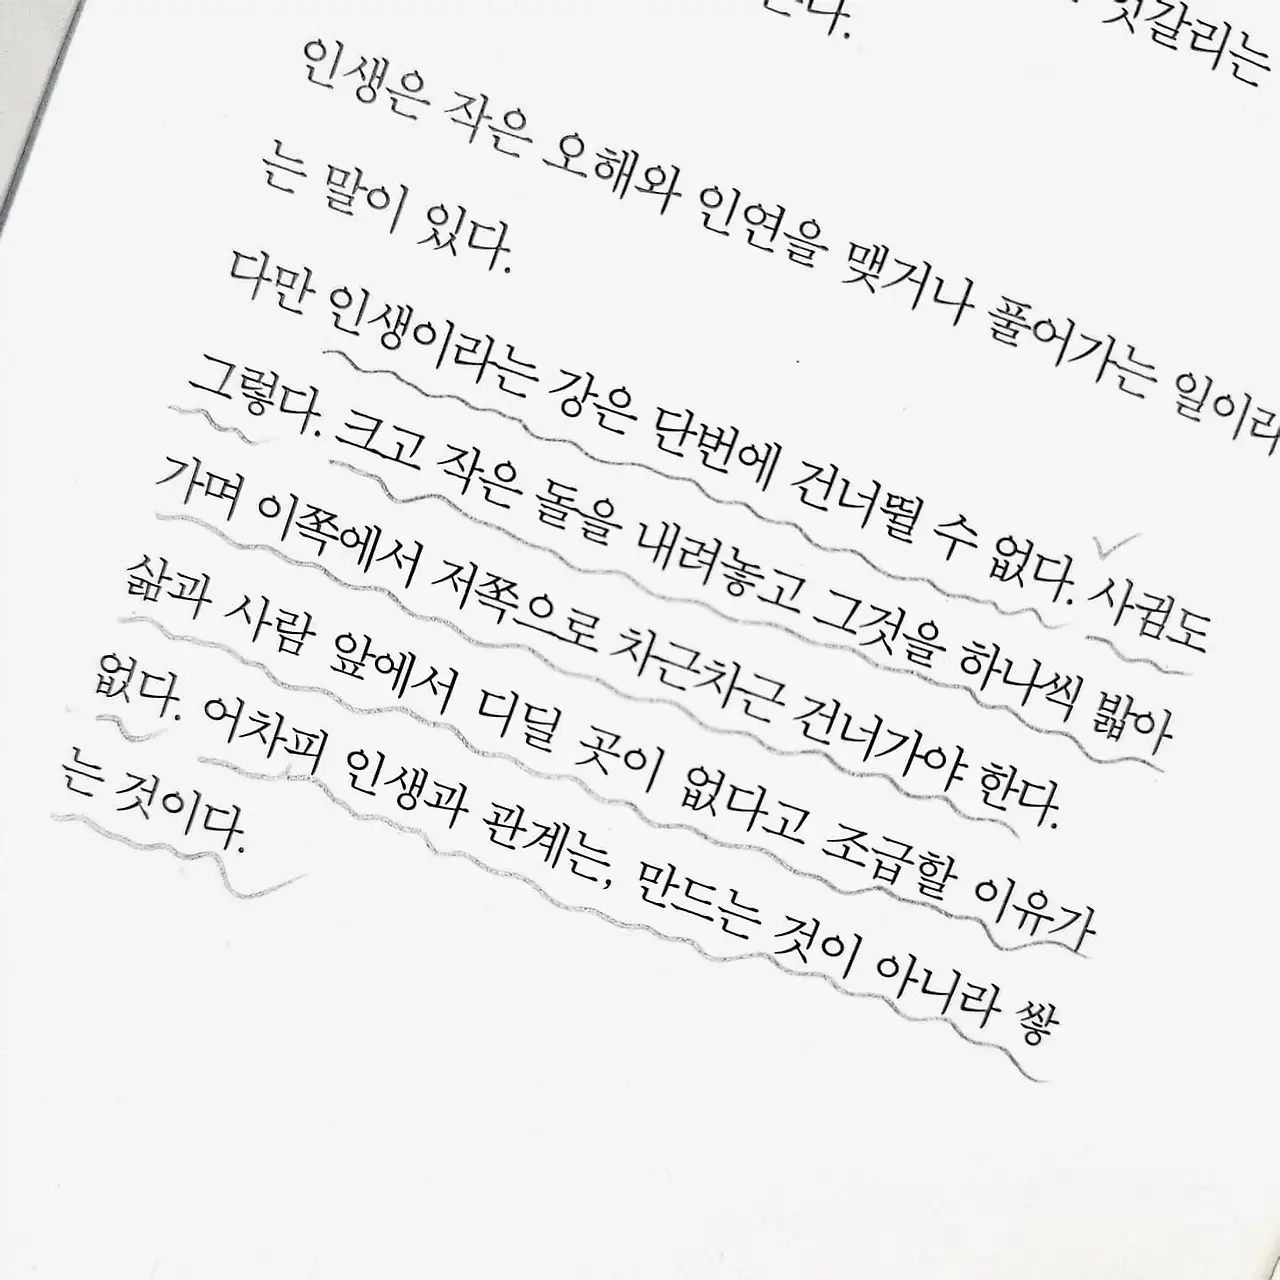 엇갈리는
인생은 작은 오해와 인연을 맺거나 풀어가는 일이라
는 말이 있다.
다만 인생이라는 강은 단번에 건너뛸 수 없다. 사귐도
그렇다. 크고 작은 돌을 내려놓고 그것을 하나씩 밟아
가며 이쪽에서 저쪽으로 차근차근 건너가야 한다.
삶과 사람 앞에서 디딜 곳이 없다고 조급할 이유가
없다. 어차피 인생과 관계는, 만드는 것이 아니라 쌓
는 것이다.